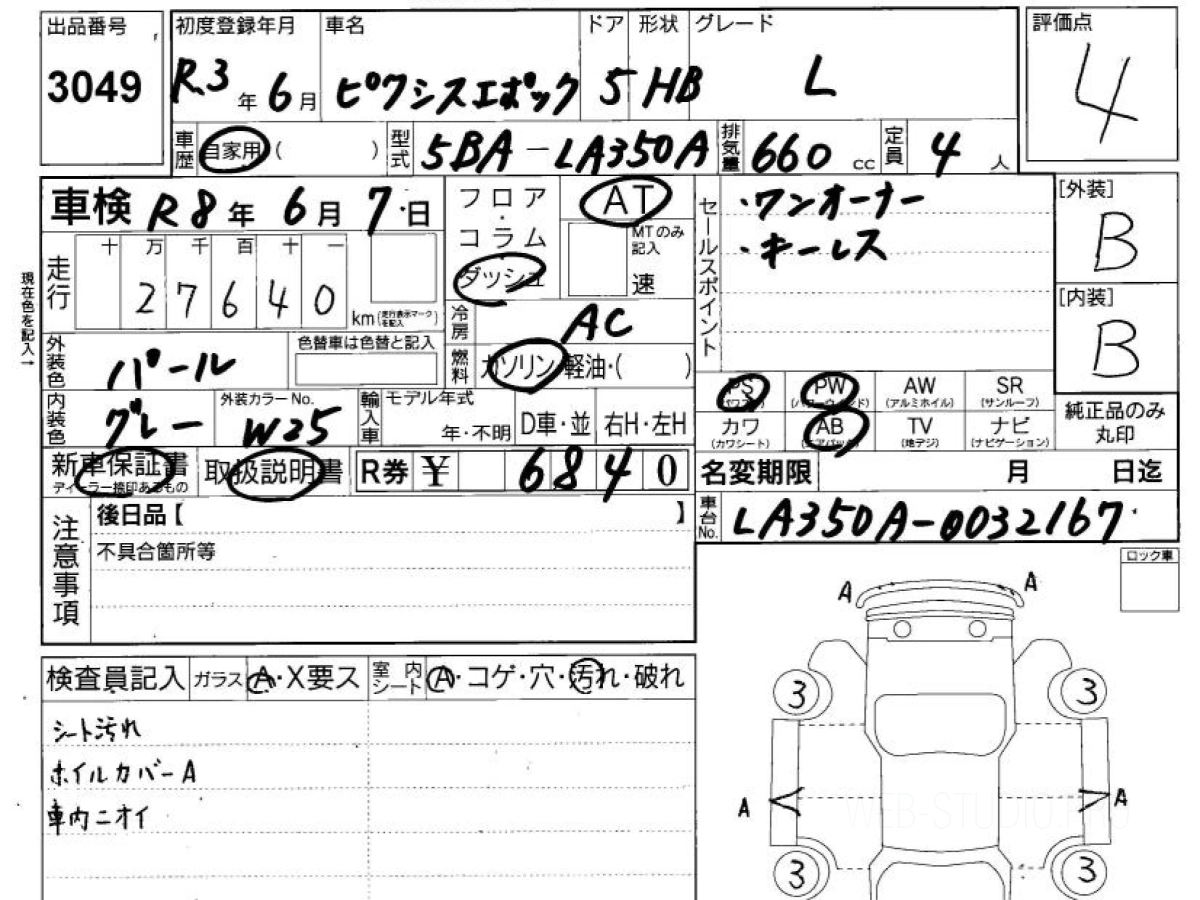 出品番号 初度登録年月 車名 ドア 形状 グレード 評価点
3049 R.3年 6月 ピクシスエポック 5 HB L 4
車歴 自家用 ( ) 型式 5BA-LA350A 排気量 660 cc 定員 4 人
車検 R8年 6月 7日 フロア・コラム ダッシュ AT セールスポイント ・ワンオーナー [外装]
MTのみ記入 速 ・キーレス B
現在色を記入→ 走行 十 万 千 百 十 一
27640 km (走行表示マークを記入) [内装]
冷房 AC B
外装色 パール 色替車は色替と記入 燃料 ガソリン・軽油・( )
PS (パワステ) PW (パワーウィンド) AW (アルミホイル) SR (サンルーフ)
内装色 グレー 外装カラーNo. W25 輸入車 モデル年式 年・不明 D車・並 右H・左H
カワ (カワシート) AB (エアバック) TV (地デジ) ナビ (ナビゲーション) 純正品のみ丸印
新車保証書 ディーラー捺印あるもの 取扱説明書 R券 ¥ 6840 名変期限 月 日迄
注意事項 後日品【 】 車台No. LA350A-0032167
不具合箇所等 ロック車
A A
検査員記入 ガラス A・X要ス 室内シート A・コゲ・穴・汚れ・破れ
3 3
シート汚れ
ホイルカバーA
A A
車内ニオイ
WEB-STUDIO.PRO
3 3